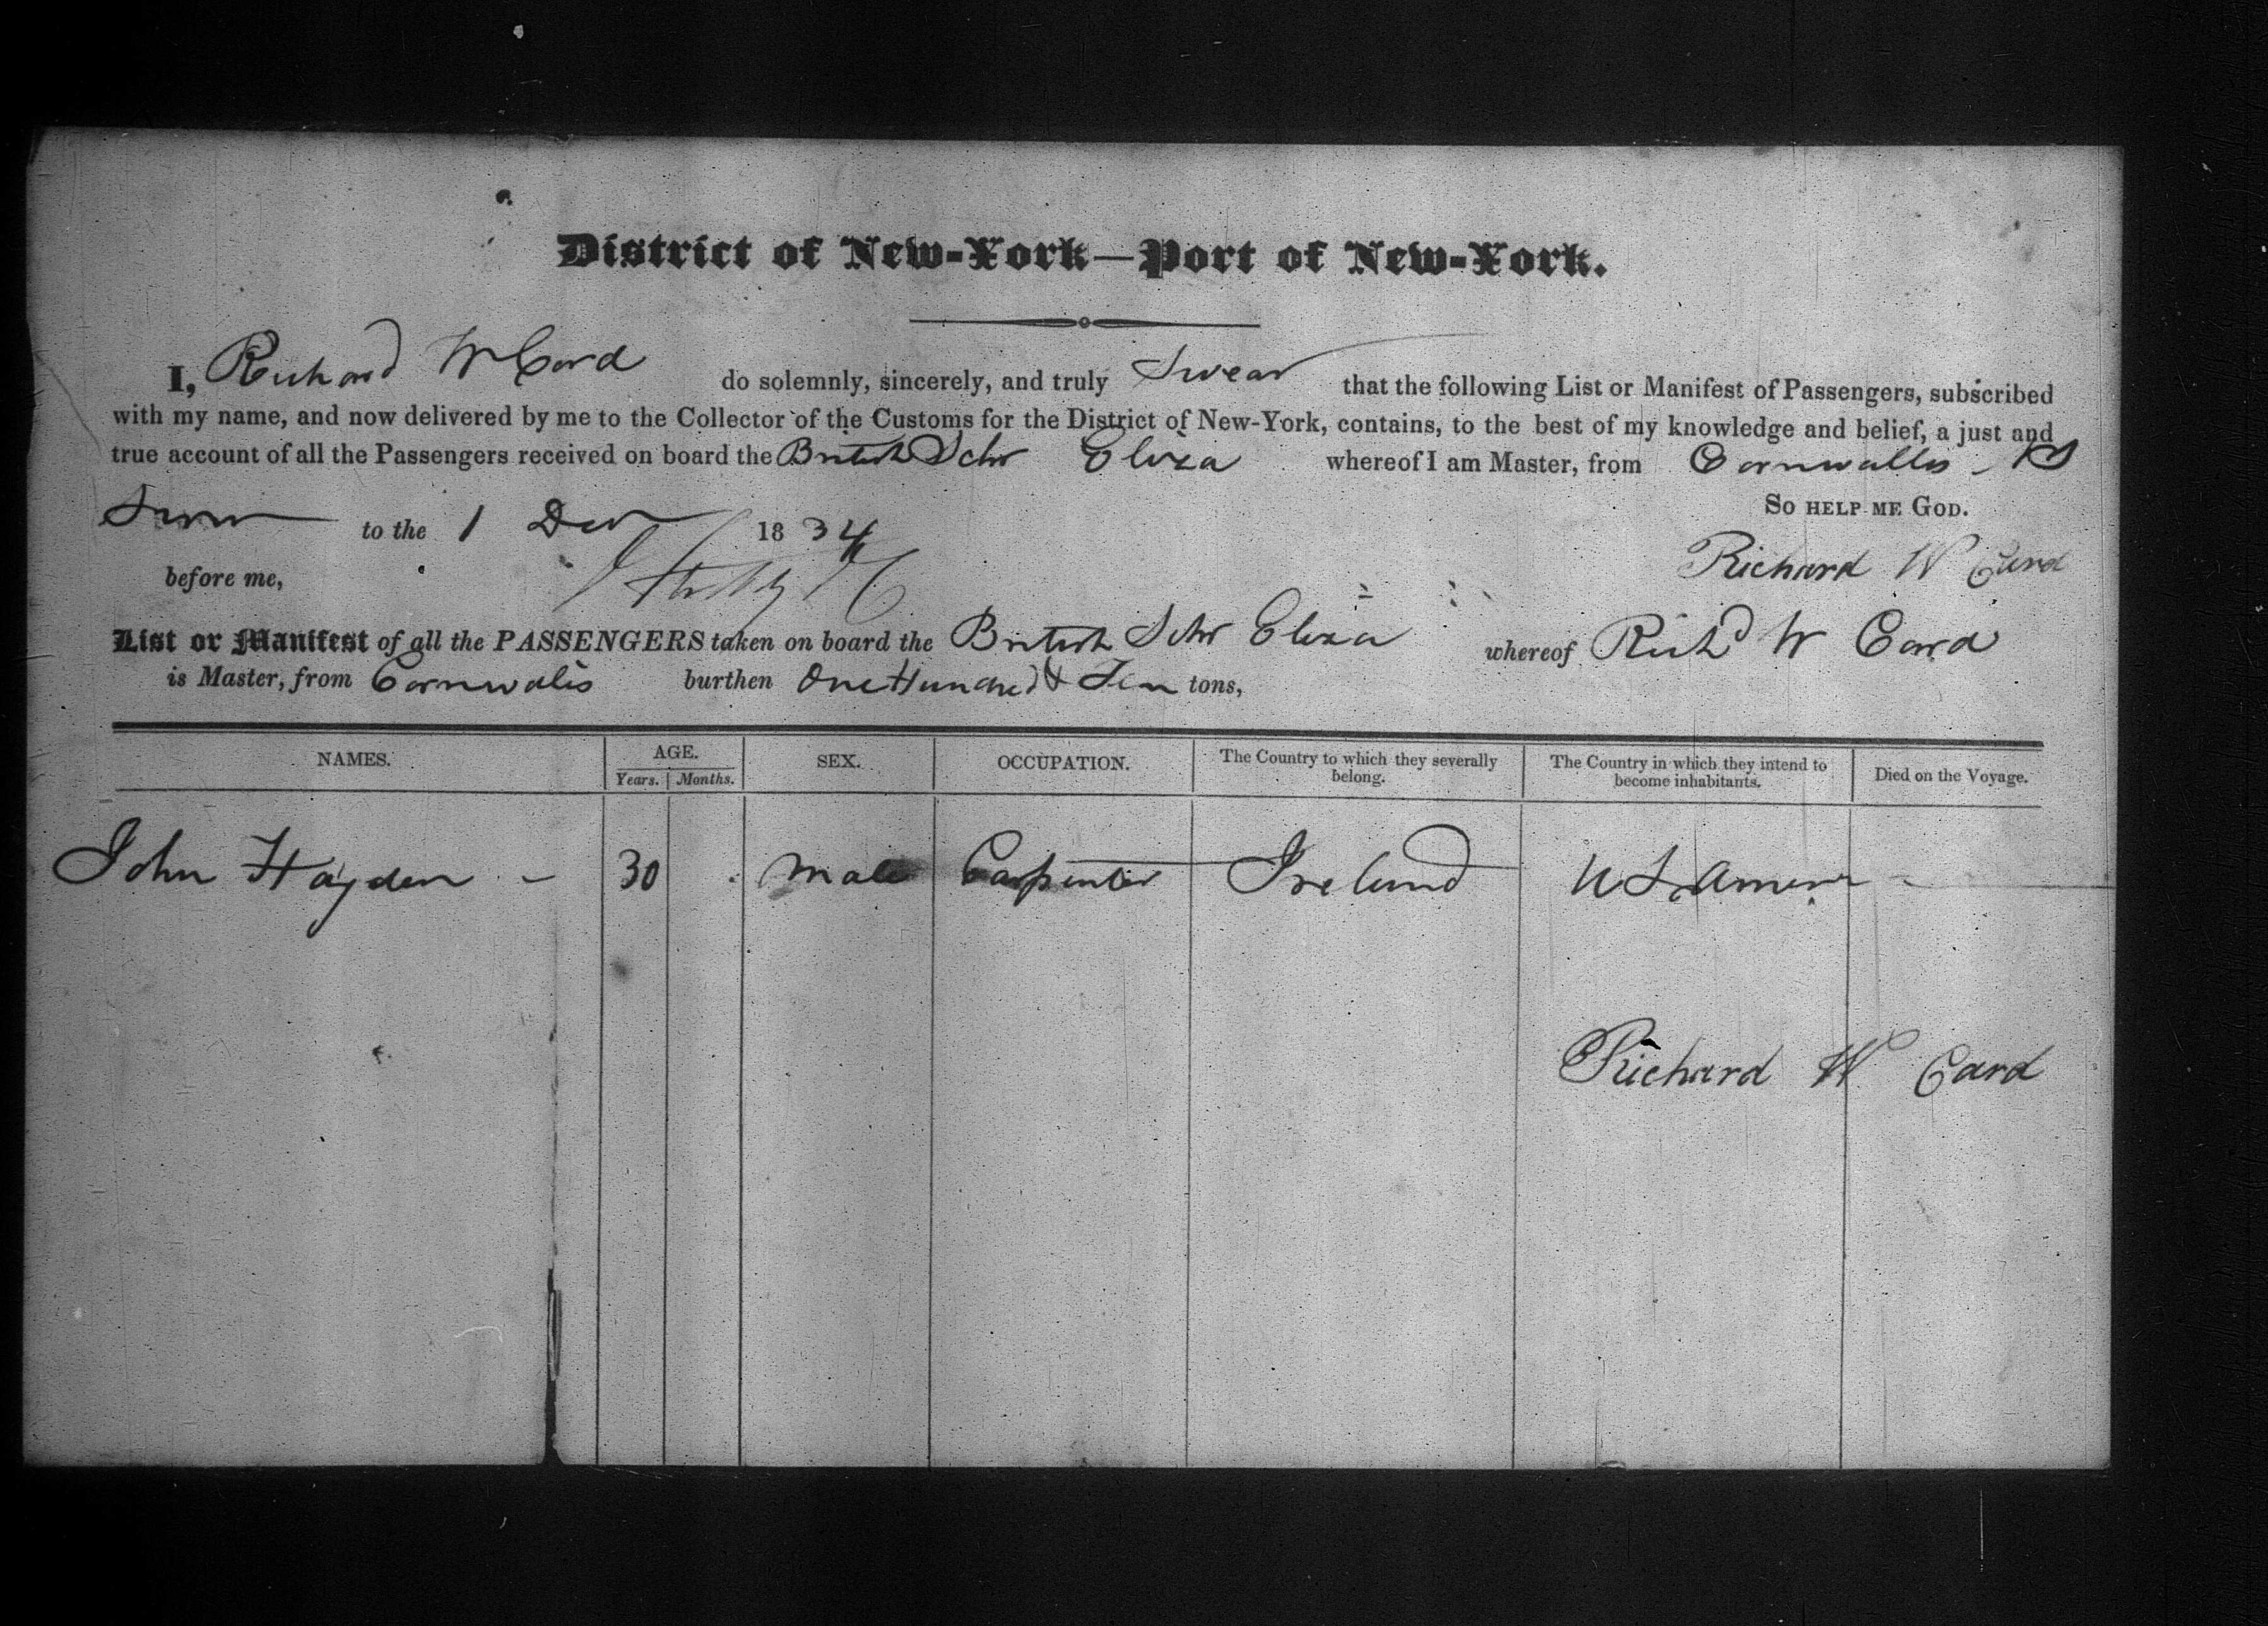 District of New-York—Port of New-York.
I, Richard W Card do solemnly, sincerely, and truly Swear that the following List or Manifest of Passengers, subscribed
with my name, and now delivered by me to the Collector of the Customs for the District of New-York, contains, to the best of my knowledge and belief, a just and
true account of all the Passengers received on board the British Schr Eliza whereof I am Master, from Cornwallis - NS
So help me God.
Sworn to the 1 Decr 1834
Richard W Card
before me,
List or Manifest of all the PASSENGERS taken on board the British Schr Eliza whereof Richd W Card
is Master, from Cornwalis burthen One Hundred & Ten tons,
NAMES. AGE. Years. Months. SEX. OCCUPATION. The Country to which they severally belong. The Country in which they intend to become inhabitants. Died on the Voyage.
John Hayden - 30 Male Carpenter Ireland U S America -
Richard W Card